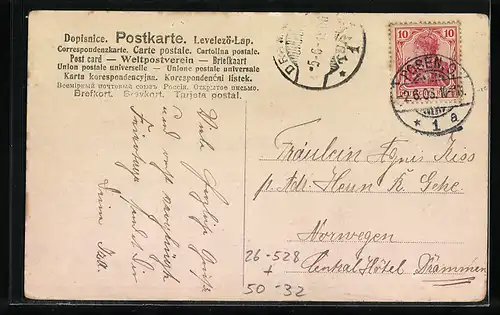 Dopisnice. Postkarte. Levelező-Lap.
Correspondenzkarte. Carte postale. Cartolina postale.
Post card — Weltpostverein — Briefkaart
Union postale universelle — Unione postale universale
Karta korespondencyjna. Korespondenční lístek.
Всемірный почтовый союзъ Россія. Открытое письмо.
Brefkort. Brevkort. Tarjeta postal.
5.6.
10 10
POSEN O.1
6.03.
* 1 a
Fräulein Agnes Riss
p. Adr. Herrn K. Gehe
Norwegen
Central Hôtel Drammen
Viele herzliche Grüße
und recht vergnügte
Feiertage sendet Dir
Deine
26-528
+
50-32